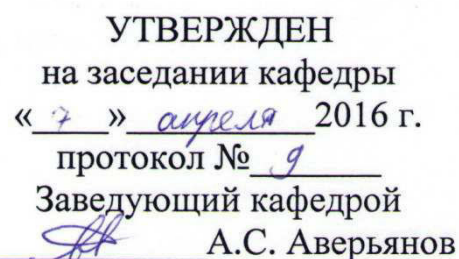 УТВЕРЖДЕН
на заседании кафедры
«7» апреля 2016 г.
протокол № 9
Заведующий кафедрой
А.С. Аверьянов